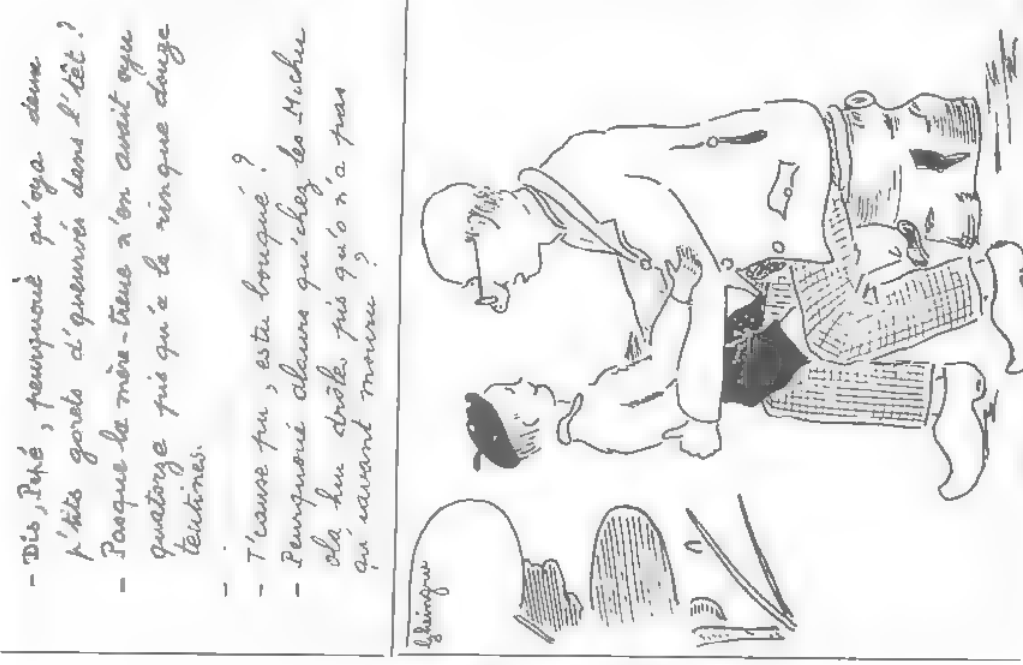 - Dis, Pépé, peurquoué qu'oya deux
p'tits gorets d'queurvés dans l'têt ?
- Pasque la mère-treue n'en avait ayu
quatorze pis qu'a la rinque douze
tétines.
-
- T'cause pu, estu bouqué ?
- Peurquoué alaurs qu'chez les Michu
ola hu drôles pis qu'o n'a pas
qu'avant mouru ?